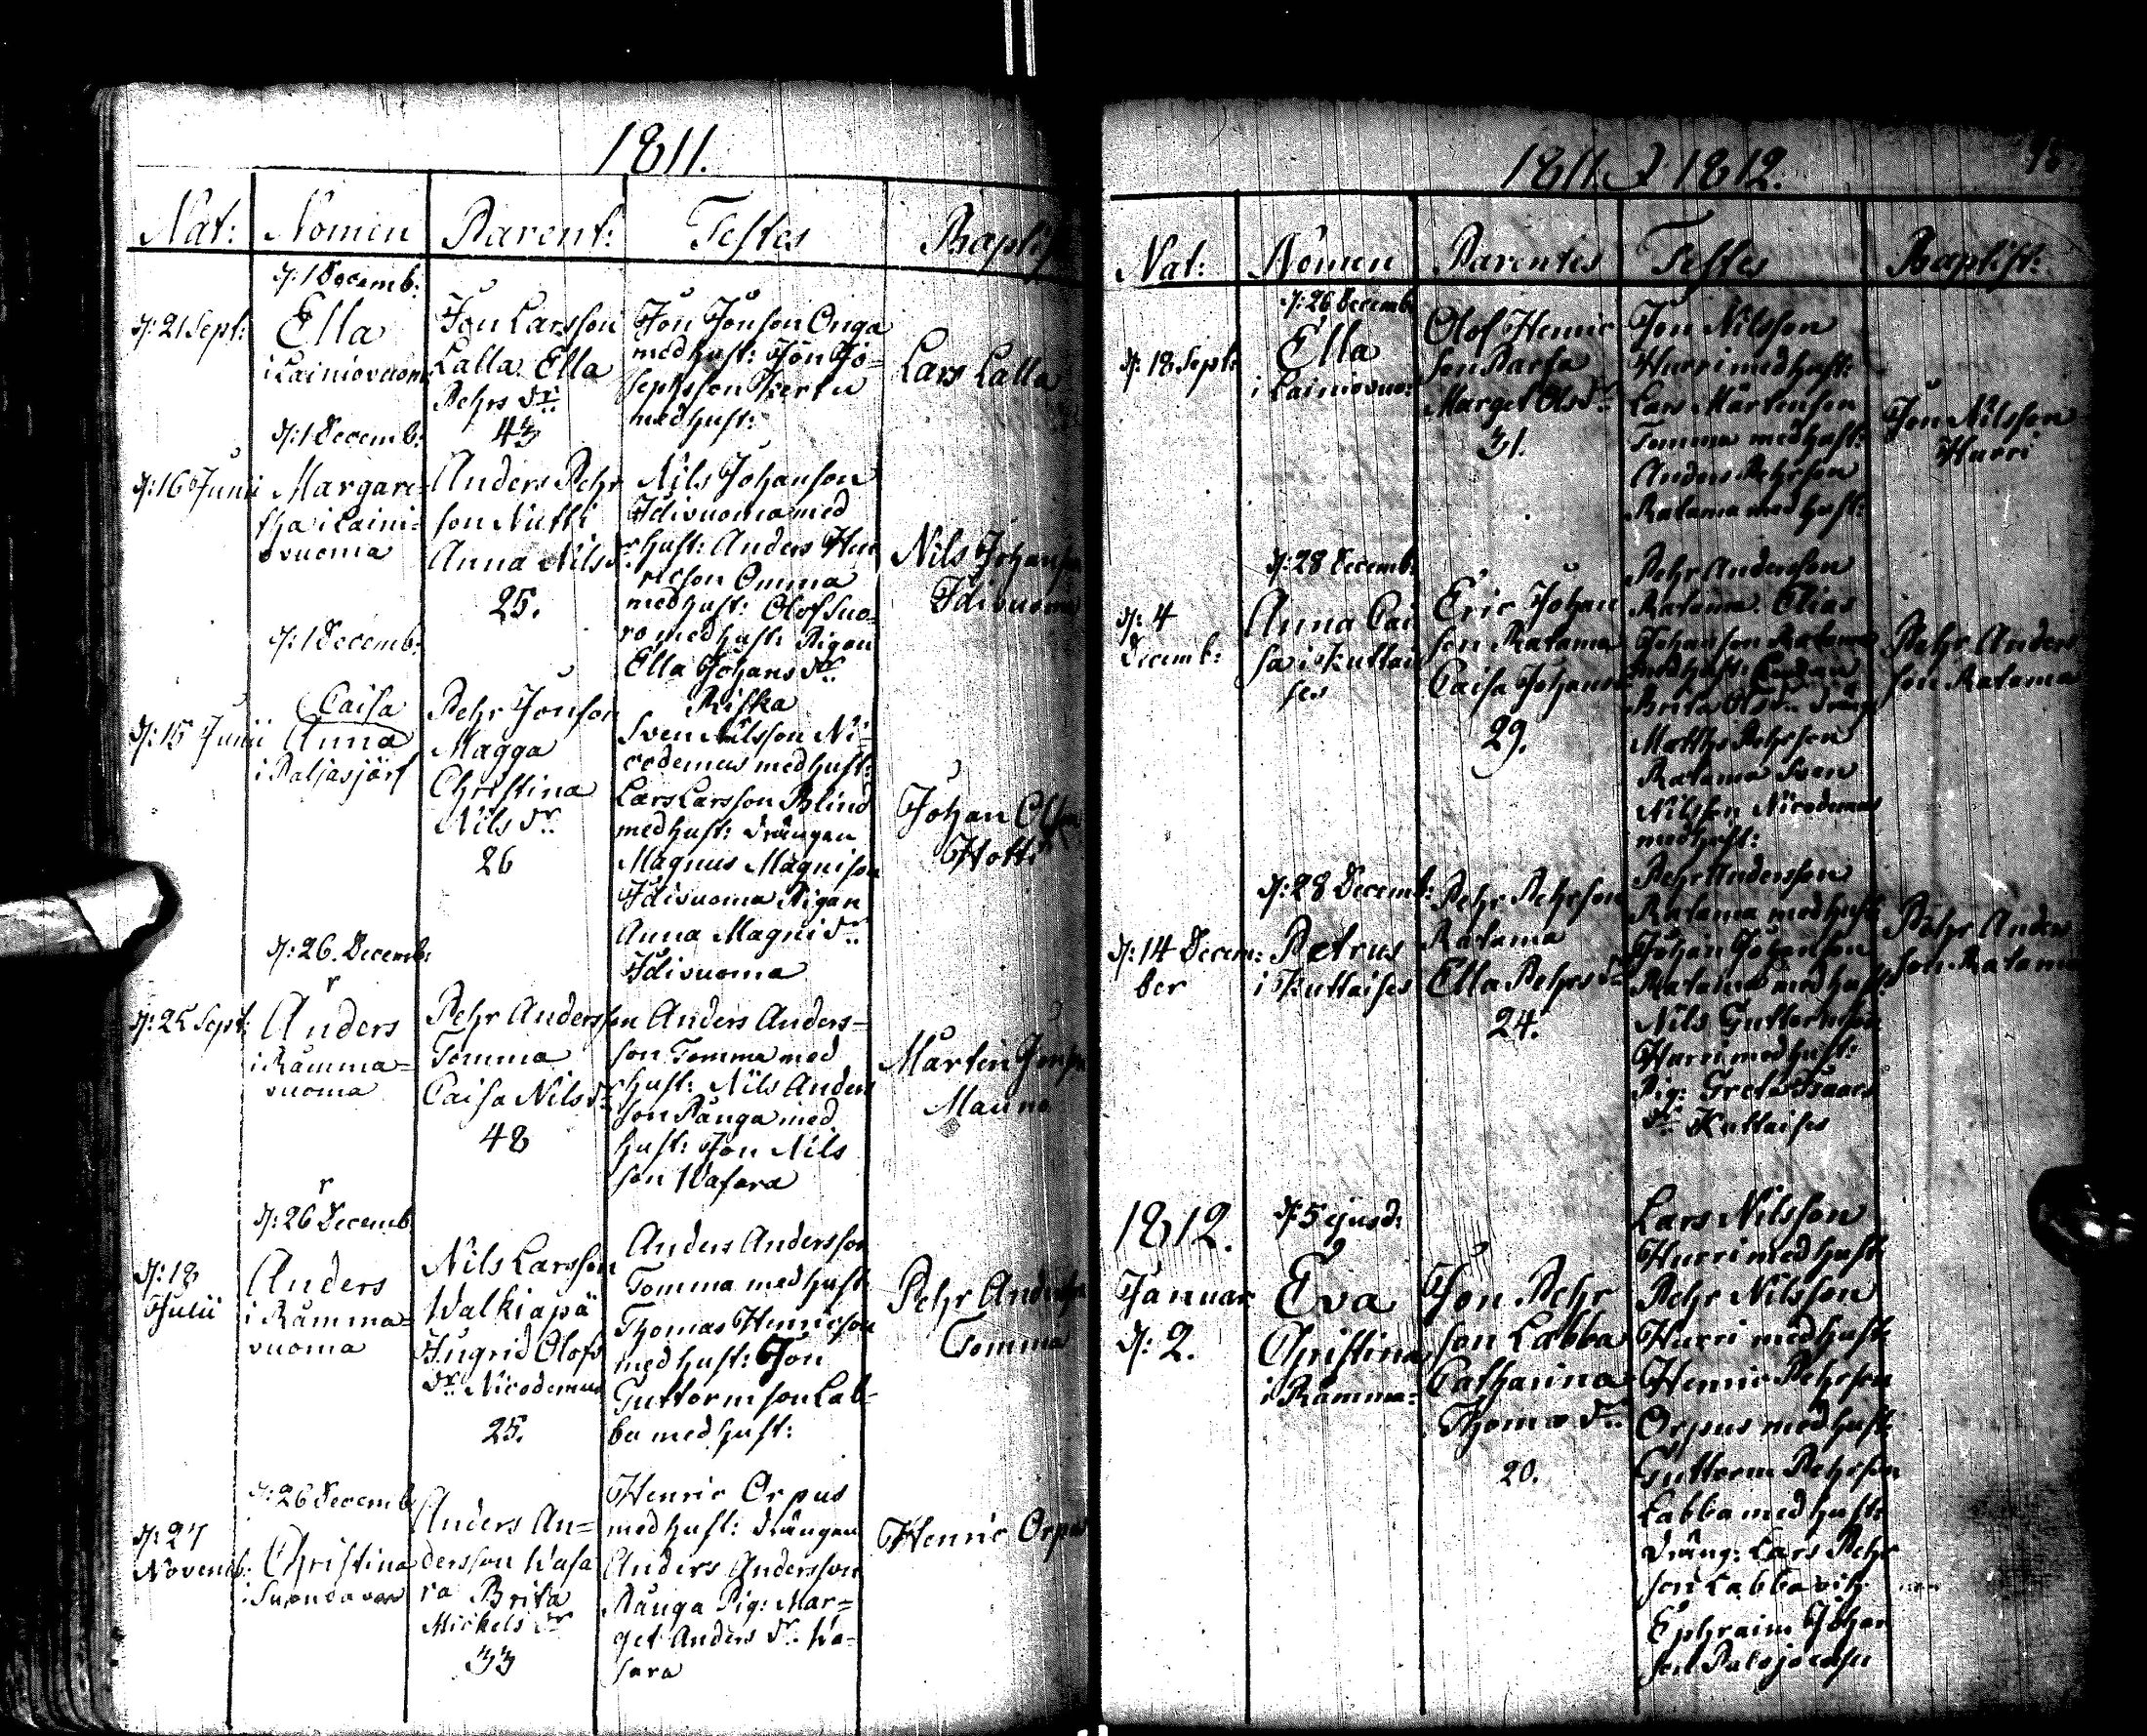 1811.
Nat: Nomen Parent: Testes Baptist
d: 1 Decemb:
d: 21 Sept:
Ella
i Lainiovuoma
Jon Larsson
Lalla Ella
Pehrs dr:
43
Jon Jonson Onga
med hust: Jon Jo=
sephsson Kertu
med hust:
Lars Lalla
d: 1 Decemb:
d: 16 Junii
Margare=
tha i Laini=
ovuoma
Anders Pehr
son Nutti
Anna Nils dr
25.
Nils Johanson
Idivuoma med
hust: Anders Hen
ricson Omma
med hust: Olof Suo=
ro med hust: Pigan
Ella Johans dr:
Riska
Nils Johanson
Idivuoma
d: 1 Decemb:
d: 15 Junii
Caisa
Anna
i Paljasjärf
Pehr Jonson
Magga
Christina
Nils dr:
26
Sven Nilsson Ni=
codemus med hust:
Lars Larsson Blind
med hust: drängen
Magnus Magnison
Idivuoma Pigan
Anna Magni dr:
Idivuoma
Johan Olson
Hotti
d: 26. Decemb:
d: 25 Sept:
Anders
i Råmma=
vuoma
Pehr Andersson
Tomma
Caisa Nils dr
48
Anders Anders=
son Tomma med
hust: Nils Anders
son Pånga med
hust: Jon Nils
son Wasara
Mårten Jonson
Mauno
d: 26 Decemb:
d: 18
Julii
Anders
i Råmma=
vuoma
Nils Larsson
Walkiapä
Ingrid Olofs
dr: Nicodemus
25.
Anders Andersson
Tomma med hust:
Thomas Henricson
med hust: Jon
Guttormson Lab=
ba med hust:
Pehr Andersson
Tomma
d: 26 Decemb:
d: 27
Novemb:
Christina
i Suondavara
Anders An=
dersson Wasa
ra Brita
Mickels dr
33
Henric Orpus
med hust: drängen
Anders Andersson
Pånga Pig: Mar=
get Anders dr: Wa=
sara
Henric Orpus
1811. & 1812.
Nat: Nomen Parentes Testes Baptist:
d: 26 Decemb:
d: 18 Sept:
Ella
i Lainiovuo:
Olof Henric
son Parfa
Marget Ols dr:
31.
Jon Nilsson
Hurri med hust:
Lars Mårtenson
Tomma med hust:
Anders Pehrson
Ratama med hust:
Jon Nilsson
Hurri
d: 28 Decemb:
d: 4
Decemb:
Anna Cai
sa i Kuttai
ses
Eric Johan
son Ratama
Caisa Johans
29.
Pehr Andersson
Ratama. Elias
Johanson Ratama
med hust:
Brita Ols dr: dräng
Matths Pehrson
Ratama Sven
Nilsson Nicodemus
med hust:
Pehr Anders
son Ratama
d: 28 Decemb:
d: 14 Decem:
ber
Petrus
i Kuttaises
Pehr Pehrson
Ratama
Ella Pehrs dr:
24.
Pehr Andersson
Ratama med hust:
Johan Johanson
Ratama med hust:
Nils Guttormson
Hurri med hust:
Pig: Greta Isaacs
dr: Kuttaises
Pehr Anders
son Ratama
1812.
d: 5 ejusd:
Januar
d: 2.
Eva
Christina
i Råmma=
Jon Pehr
son Labba
Catharina
Thomæ dr:
20.
Lars Nilsson
Hurri med hust:
Pehr Nilsson
Hurri med hust:
Henric Pehrson
Orpus med hust:
Guttorm Pehrson
Labba med hust:
dräng: Lars Pehr
son Labba
Ephraim Johan
son Palojoensu